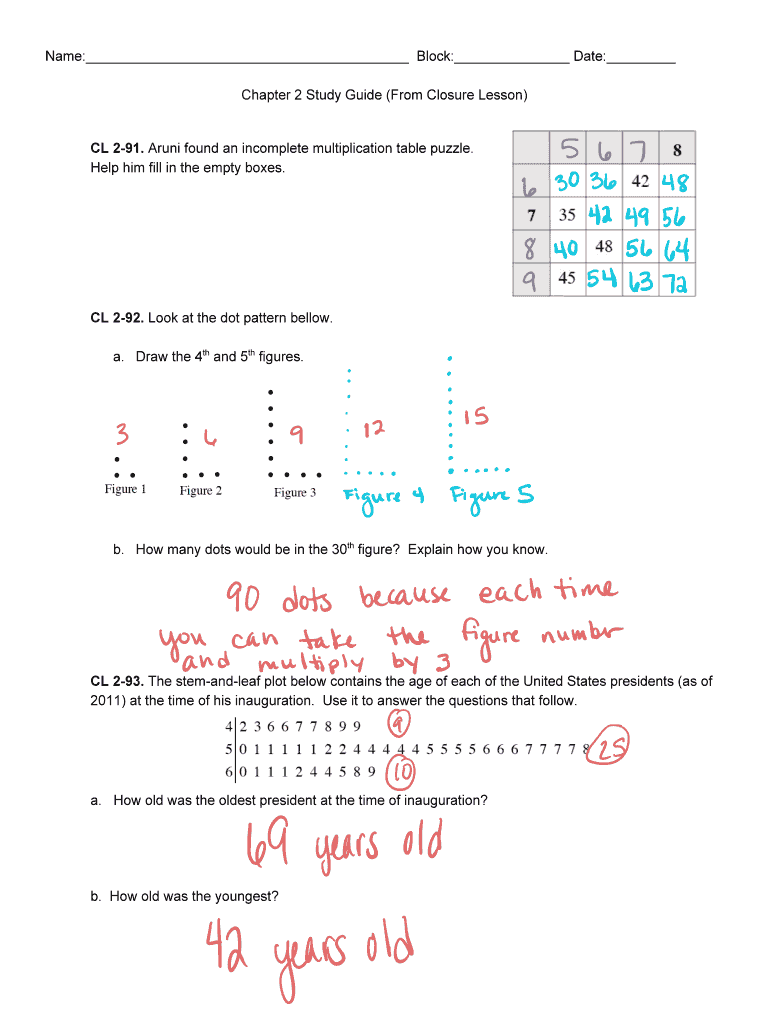 Name:__________ Block:__________ Date:__________
Chapter 2 Study Guide (From Closure Lesson)
CL 2-91. Aruni found an incomplete multiplication table puzzle.
Help him fill in the empty boxes.
5 6 7 8
6 30 36 42 48
7 35 42 49 56
8 40 48 56 64
9 45 54 63 72
CL 2-92. Look at the dot pattern bellow.
a. Draw the 4th and 5th figures.
3 6 9 12 15
Figure 1 Figure 2 Figure 3 Figure 4 Figure 5
b. How many dots would be in the 30th figure? Explain how you know.
90 dots because each time
you can take the figure number
and multiply by 3
CL 2-93. The stem-and-leaf plot below contains the age of each of the United States presidents (as of
2011) at the time of his inauguration. Use it to answer the questions that follow.
4 2 3 6 6 7 7 8 9 9 9
5 0 1 1 1 1 1 2 2 4 4 4 4 4 5 5 5 5 6 6 6 7 7 7 7 8 25
6 0 1 1 1 2 4 4 5 8 9 10
a. How old was the oldest president at the time of inauguration?
69 years old
b. How old was the youngest?
42 years old